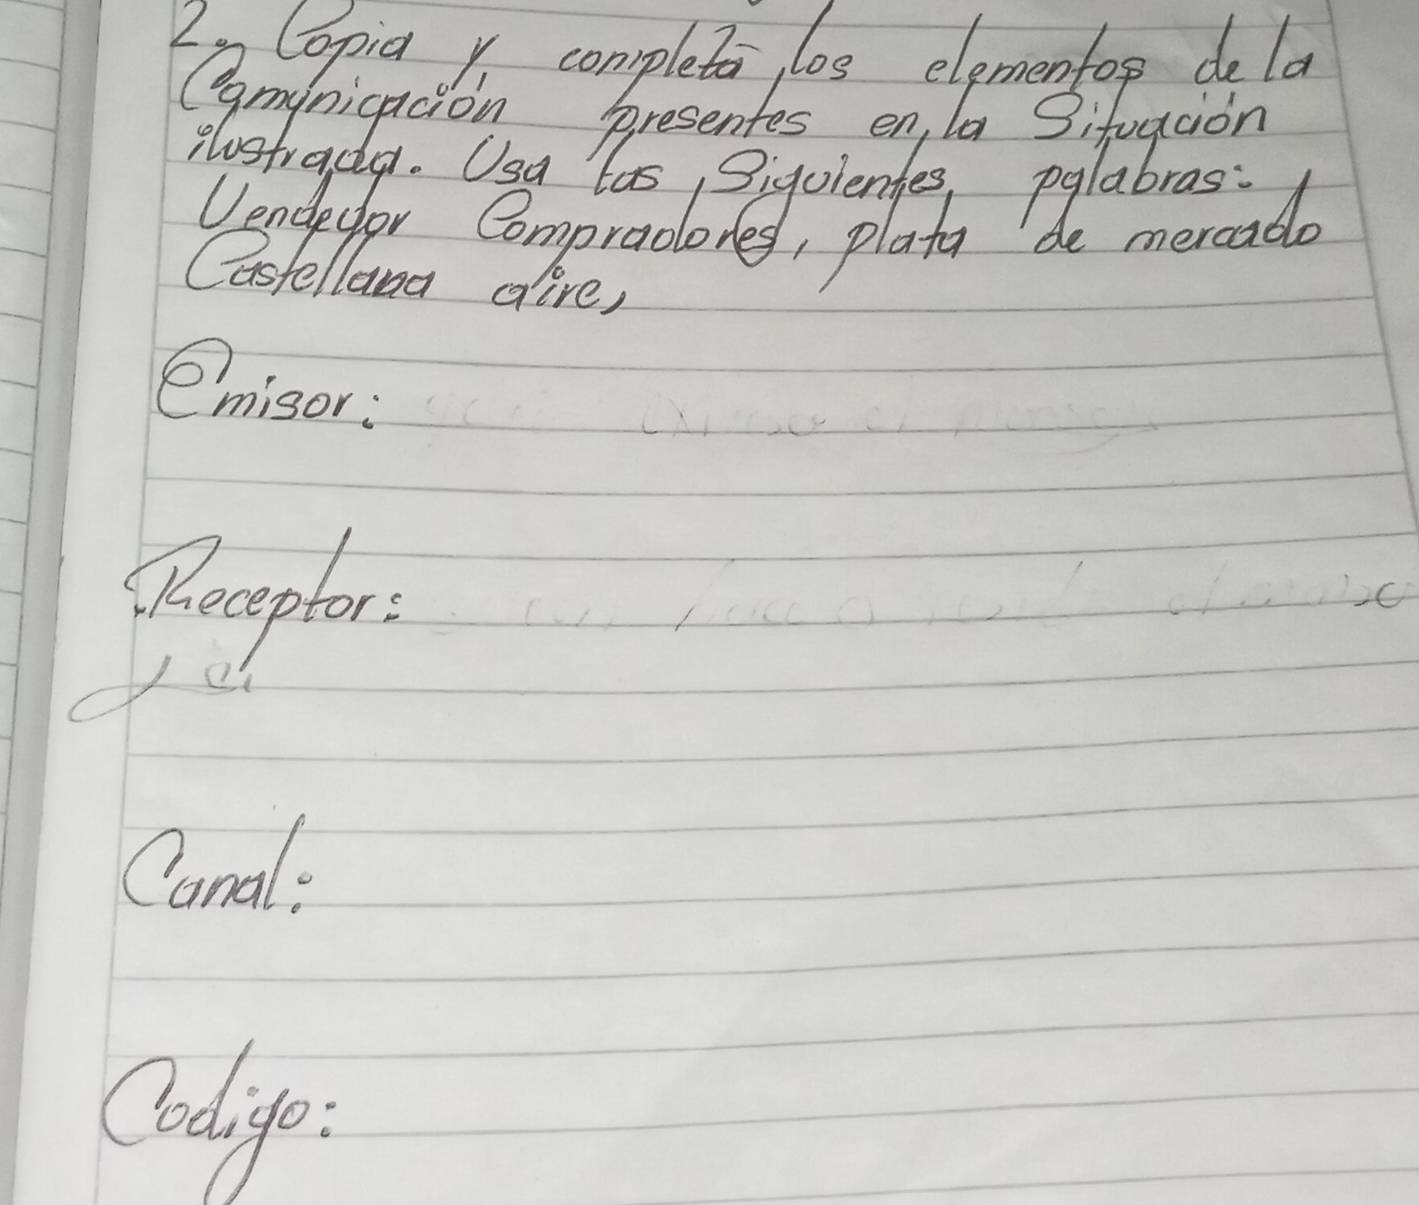 2. Copia y completa los elementos de la
Comunicación presentes en la Situación
ilustrada. Usa las Siguientes palabras:
Vendedor Compradores, plata de mercado
Castellana aire,
Emisor:
Receptor:
Canal:
Codigo: